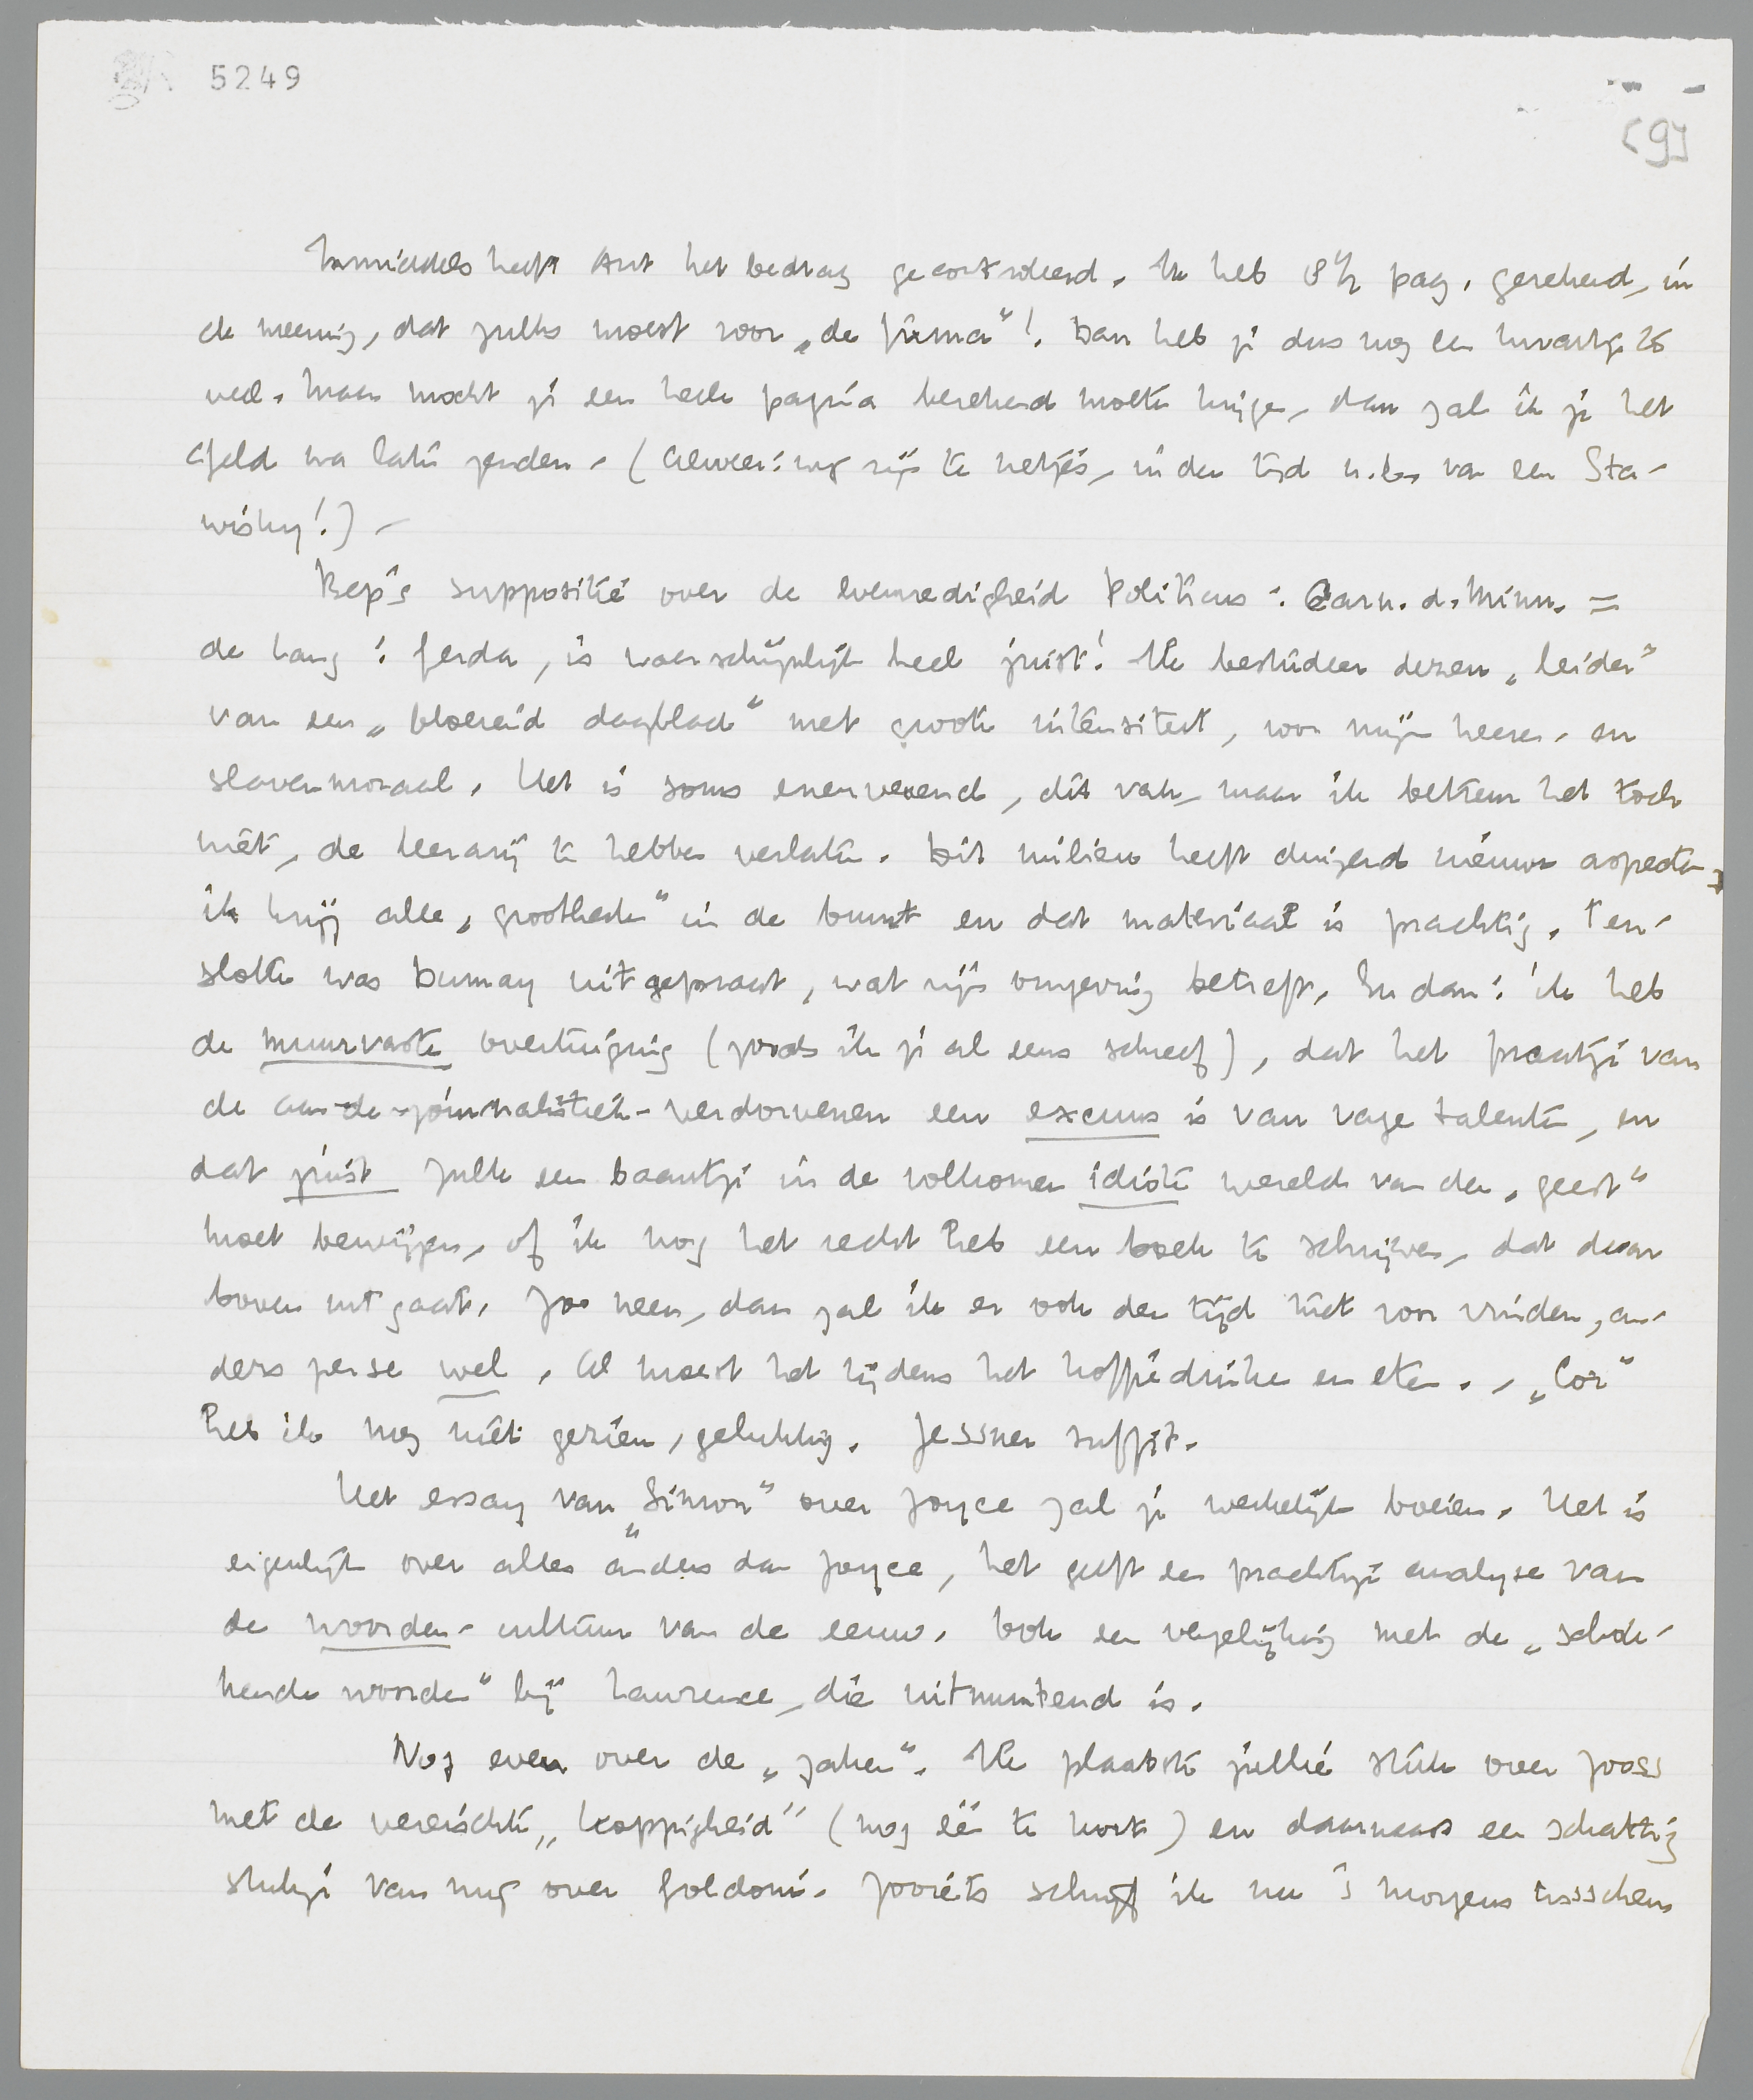 5249
[9]
Inmiddels heeft Ant het bedrag gecontroleerd. Ik heb 8½ pag. gerekend, in
de meening, dat zulks moest voor „de firma"!. Dan heb je dus nog een kwartje te
veel. Maar mocht je een heele pagina berekend moeten krijgen, dan zal ik je het
geld wel laten zenden. (Alweer: nog rijp te netjes, in den tijd n.b. van een Sta-
wisky!) –
Bep's suppositie over de evenredigheid Politicus : Carn. d. Minn. =
de Lang : Gerda, is waarschijnlijk heel juist! Ik bestudeer dezen „leider"
van een „bloeiend dagblad" met groote intensiteit, voor mijn heeren- en
slavenmoraal. Het is soms enerveerend, dit vak, maar ik betreur het toch
niet, de leerarij te hebben verlaten. Dit milieu heeft duizend nieuwe aspecten;
ik krijg alle „grootheden" in de buurt en dat materiaal is prachtig. Ten-
slotte was Dumay uitgepraat, wat zijn omgeving betreft. En dan: ik heb
de muurvaste overtuiging (zooals ik je al eens schreef), dat het praatje van
de aan-de-journalistiek-verdorvenen een excuus is van vage talenten, en
dat juist zulk een baantje in de volkomen idiote wereld van den „geest"
moet bewijzen, of ik nog het recht heb een boek te schrijven, dat daar
boven uit gaat. Zoo neen, dan zal ik er ook den tijd niet voor vinden, an-
ders per se wel. Al moest het tijdens het koffiedrinken en eten. – „Cor"
heb ik nog niet gezien, gelukkig. Jessner suffit.
Het essay van „Simon" over Joyce zal je werkelijk boeien. Het is
eigenlijk over alles anders dan Joyce, het geeft een prachtige analyse van
de woorden-cultuur van de eeuw. Ook een vergelijking met de „schok-
kende woorden" bij Lawrence, die uitmuntend is.
Nog even over de „zaken". Ik plaatste jullie stuk over Jooss
met de vereischte „koppigheid" (nog één te kort) en daarnaast een schattig
stukje van mij over Goldoni. Zooiets schrijf ik nu 's morgens tusschen